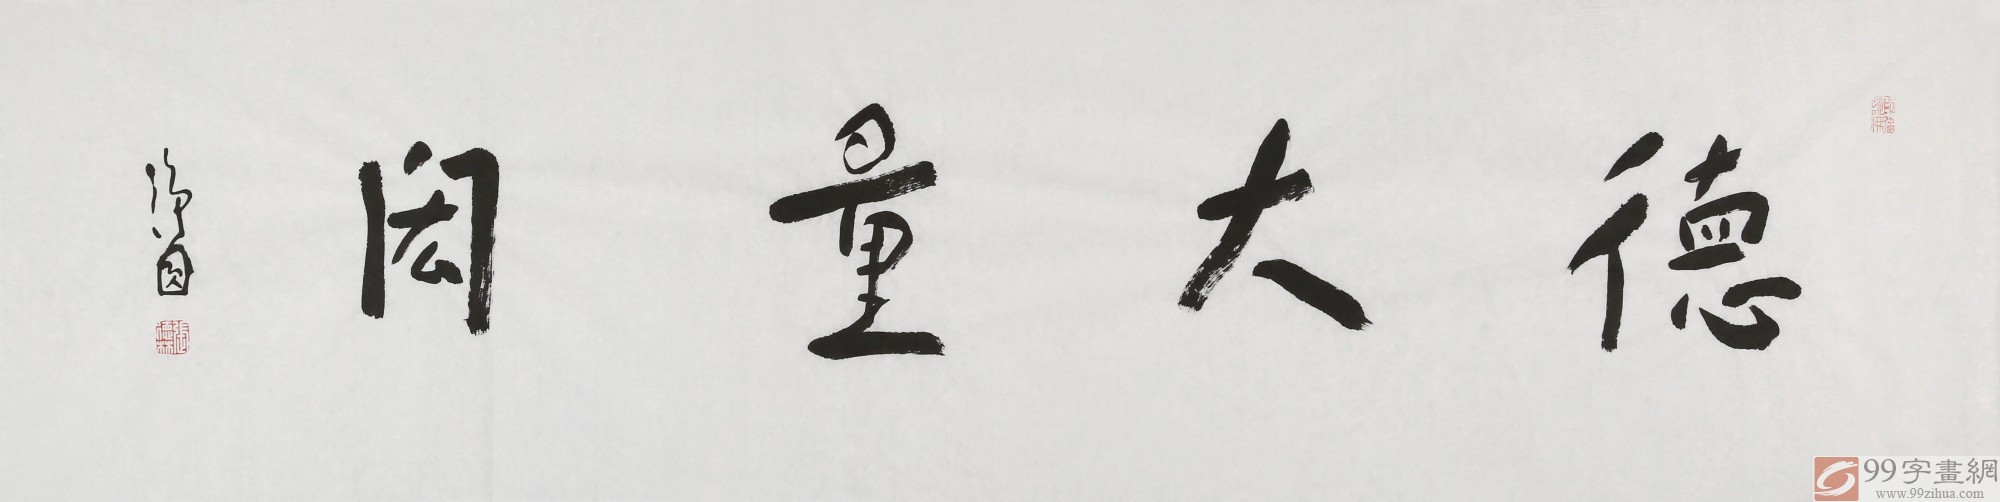 德大量闳
張德林
99字畫網
www.99zihua.com